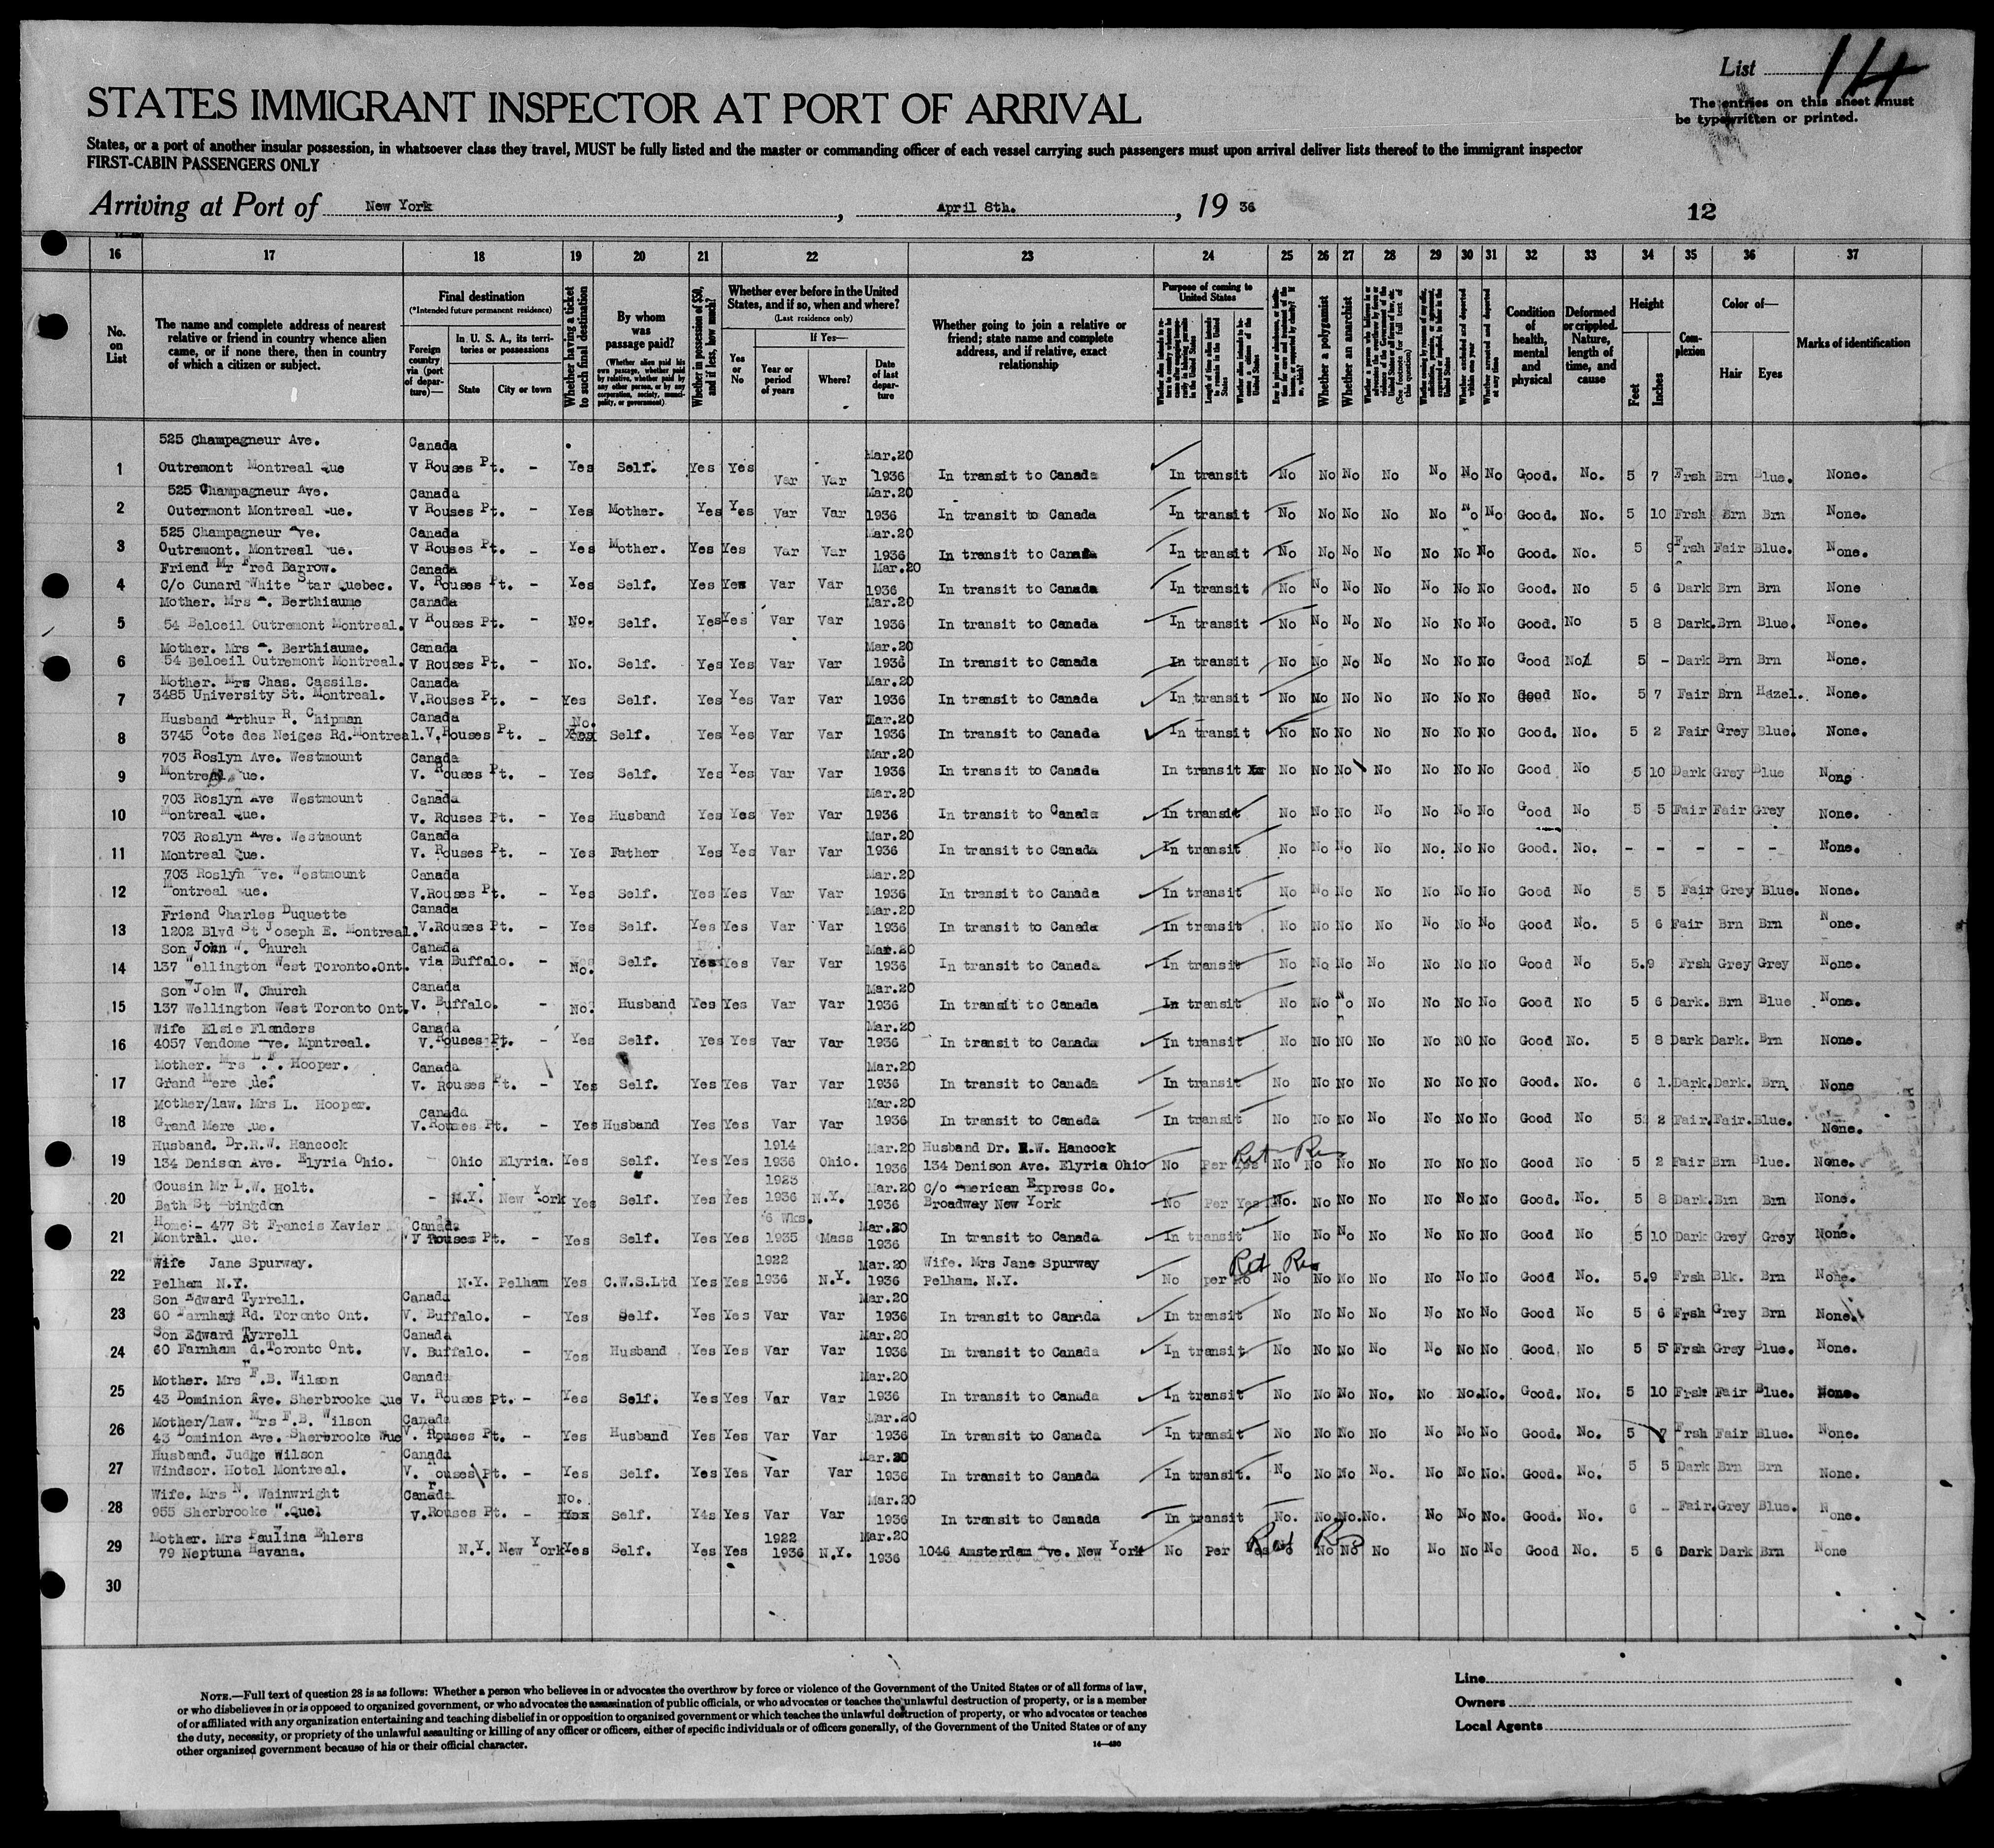 List 14
The entries on this sheet must
be typewritten or printed.
STATES IMMIGRANT INSPECTOR AT PORT OF ARRIVAL
States, or a port of another insular possession, in whatsoever class they travel, MUST be fully listed and the master or commanding officer of each vessel carrying such passengers must upon arrival deliver lists thereof to the immigrant inspector
FIRST-CABIN PASSENGERS ONLY
Arriving at Port of New York, April 8th., 19 36
12
16 17 18 19 20 21 22 23 24 25 26 27 28 29 30 31 32 33 34 35 36 37
No. on List
The name and complete address of nearest relative or friend in country whence alien came, or if none there, then in country of which a citizen or subject.
Final destination
(*Intended future permanent residence)
Foreign country via (port of departure)—
In U. S. A., its territories or possessions
State
City or town
Whether having a ticket to such final destination
By whom was passage paid?
(Whether alien paid his own passage, whether paid by relative, whether paid by any other person, or by any corporation, society, municipality, or government)
Whether in possession of $50, and if less, how much?
Whether ever before in the United States, and if so, when and where?
(Last residence only)
Yes or No
If Yes—
Year or period of years
Where?
Date of last departure
Whether going to join a relative or friend; state name and complete address, and if relative, exact relationship
Purpose of coming to United States
Length of time alien intends to remain in the United States
Whether a polygamist
Whether an anarchist
(See footnote for full text of this question)
Whether arrested and deported at any time
Condition of health, mental and physical
Deformed or crippled. Nature, length of time, and cause
Height
Feet
Inches
Complexion
Color of—
Hair
Eyes
Marks of identification
525 Champagneur Ave. Canada Mar.20
1 Outremont Montreal Que V Rouses Pt. - Yes Self. Yes Yes Var Var 1936 In transit to Canada In transit No No No No No No No Good. No. 5 7 Frsh Brn Blue. None.
525 Champagneur Ave. Canada Mar.20
2 Outermont Montreal ue. V Rouses Pt. - Yes Mother. Yes Yes Var Var 1936 In transit to Canada In transit No No No No No No No Good. No. 5 10 Frsh Brn Brn None.
525 Champagneur ve. Canada Mar.20
3 Outremont. Montreal ue. V Rouses Pt. - Yes Mother. Yes Yes Var Var 1936 In transit to Canada In transit No No No No No No No Good. No. 5 9 Frsh Fair Blue. None.
Friend Mr Fred Barrow. Canada Mar.20
4 C/o Cunard White Star Quebec. V. Rouses Pt. - Yes Self. Yes Yes Var Var 1936 In transit to Canada In transit No No No No No No No Good. No 5 6 Dark Brn Brn None
Mother. Mrs . Berthiaume Canada Mar.20
5 54 Beloeil Outremont Montreal. V Rouses Pt. - No. Self. Yes Yes Var Var 1936 In transit to Canada In transit No No No No No No No Good. No 5 8 Dark. Brn Blue. None.
Mother. Mrs . Berthiaume. Canada Mar.20
6 54 Beloeil Outremont Montreal. V Rouses Pt. - No. Self. Yes Yes Var Var 1936 In transit to Canada In transit No No No No No No No Good No 5 - Dark Brn Brn None.
Mother. Mrs Chas. Cassils. Canada Mar.20
7 3485 University St. Montreal. V.Rouses Pt. - Yes Self. Yes Yes Var Var 1936 In transit to Canada In transit No No No No No No No Good No. 5 7 Fair Brn Hazel. None.
Husband rthur R. Chipman Canada No. Mar.20
8 3745 Cote des Neiges Rd.Montreal. V.Rouses Pt. - Yes Self. Yes Yes Var Var 1936 In transit to Canada In transit No No No No No No No Good. No. 5 2 Fair Grey Blue. None.
703 Roslyn Ave. Westmount Canada Mar.20
9 Montreal ue. V. Rouses Pt. - Yes Self. Yes Yes Var Var 1936 In transit to Canada In transit No No No No No No No Good No 5 10 Dark Grey Blue None
703 Roslyn Ave Westmount Canada Mar.20
10 Montreal Que. V. Rouses Pt. - Yes Husband Yes Yes Ver Var 1936 In transit to Canada In transit No No No No No No No Good No 5 5 Fair Fair Grey None.
703 Roslyn ve. Westmount Canada Mar.20
11 Montreal Que. V. Rouses Pt. - Yes Father Yes Yes Var Var 1936 In transit to Canada In transit No No No No No. No No Good. No. - - - - - None.
703 Roslyn ve. Westmount Canada Mar.20
12 Montreal ue. V.Rouses Pt. - Yes Self. Yes Yes Var Var 1936 In transit to Canada In transit No No No No No No No Good No 5 5 Fair Grey Blue. None.
Friend Charles Duquette Canada Mar.20
13 1202 Blvd St Joseph E. Montreal. V.Rouses Pt. - Yes Self. Yes Yes Var Var 1936 In transit to Canada In transit No No No No No No No Good No. 5 6 Fair Brn Brn None.
Son John W. Church Canada Mar.20
14 137 Wellington West Toronto.Ont. via Buffalo. - No. Self. Yes Yes Var Var 1936 In transit to Canada In transit No No No No No No No Good No 5.9 Frsh Grey Grey None.
Son John W. Church Canada Mar.20
15 137 Wellington West Toronto Ont. V. Buffalo. - No. Husband Yes Yes Var Var 1936 In transit to Canada In transit No No No No No No No Good No 5 6 Dark. Brn Blue None.
Wife Elsie Flanders Canada Mar.20
16 4057 Vendome ve. Mpntreal. V. Rouses Pt. - Yes Self. Yes Yes Var Var 1936 In transit to Canada In transit No No NO No No NO No Good No. 5 8 Dark Dark. Brn None.
Mother. Mrs L F. Hooper. Canada Mar.20
17 Grand Mere ue. V. Rouses Pt. - Yes Self. Yes Yes Var Var 1936 In transit to Canada In transit No No No No No No No Good. No. 6 1. Dark. Dark. Brn None
Mother/law. Mrs L. Hooper. Canada Mar.20
18 Grand Mere ue. V.Rouses Pt. - Yes Husband Yes Yes Var Var 1936 In transit to Canada In transit No No No No No No No Good No 5 2 Fair. Fair. Blue. None.
Husband. Dr.R.W. Hancock 1914 Mar.20 Husband Dr. R.W. Hancock Ret Res
19 134 Denison Ave. Elyria Ohio. - Ohio Elyria. Yes Self. Yes Yes 1936 Ohio. 1936 134 Denison Ave. Elyria Ohio No Per Yes No No No No No No No Good No 5 2 Fair Brn Blue. None.
Cousin Mr L.W. Holt. 1923 Mar.20 C/o merican Express Co.
20 Bath St bingdon - N.Y. New York Yes Self. Yes Yes 1936 N.Y. 1936 Broadway New York No Per Yes No. No No No No No No Good. No. 5 8 Dark. Brn Brn None.
Home:- 477 St Francis Xavier Canada 6 Wks. Mar.20
21 Montral. Que. V Rouses Pt. - Yes Self. Yes Yes 1935 Mass 1936 In transit to Canada In transit No No No No No No No Good No 5 10 Dark Grey Grey None.
Wife Jane Spurway. 1922 Mar.20 Wife. Mrs Jane Spurway Ret Res
22 Pelham N.Y. N.Y. Pelham Yes C.W.S.Ltd Yes Yes 1936 N.Y. 1936 Pelham. N.Y. No per No No No No No No No No Good No. 5.9 Frsh Blk. Brn None.
Son Edward Tyrrell. Canada Mar.20
23 60 Farnham Rd. Toronto Ont. V. Buffalo. - Yes Self. Yes Yes Var Var 1936 In transit to Canada In transit No No No No No No No Good No 5 6 Frsh Grey Brn None.
Son Edward Tyrrell Canada Mar.20
24 60 Farnham d.Toronto Ont. V. Buffalo. - Yes Husband Yes Yes Var Var 1936 In transit to Canada In transit No No No No No No No Good No 5 5 Frsh Grey Blue. None.
Mother. Mrs F.B. Wilson Canada Mar.20
25 43 Dominion Ave. Sherbrooke Que V. Rouses Pt. - Yes Self. Yes Yes Var Var 1936 In transit to Canada In transit No No No No. No No. No. Good. No. 5 10 Frsh Fair Blue. None.
Mother/law. Mrs F.B. Wilson Canada Mar.20
26 43 Dominion Ave. Sherbrooke Wue V. Rouses Pt. - Yes Husband Yes Yes Var Var 1936 In transit to Canada In transit No No No No No No No Good. No. 5 7 Frsh Fair Blue. None.
Husband. Judge Wilson Canada Mar.20
27 Windsor. Hotel Montreal. V. ouses Pt. - Yes Self. Yes Yes Var Var 1936 In transit to Canada In transit. No No No No. No No No. Good. No. 5 5 Dark Brn Brn None.
Wife. Mrs N. Wainwright Canada No. Mar.20
28 955 Sherbrooke W.Que. V.Rouses Pt. - Yes Self. Y4s Yes Var Var 1936 In transit to Canada In transit No. No. No. No. No No No. Good. No. 6 - Fair. Grey Blue. None.
Mother. Mrs Paulina Ehlers 1922 Mar.20 Ret Res
29 79 Neptuna Havana. N.Y. New York Yes Self. Yes Yes 1936 N.Y. 1936 1046 Amsterdam ve. New York No Per No No No No No No Good No. 5 6 Dark Dark Brn None
30
NOTE.—Full text of question 28 is as follows: Whether a person who believes in or advocates the overthrow by force or violence of the Government of the United States or of all forms of law,
or who disbelieves in or is opposed to organized government, or who advocates the assassination of public officials, or who advocates or teaches the unlawful destruction of property, or is a member
of or affiliated with any organization entertaining and teaching disbelief in or opposition to organized government or which teaches the unlawful destruction of property, or who advocates or teaches
the duty, necessity, or propriety of the unlawful assaulting or killing of any officer or officers, either of specific individuals or of officers generally, of the Government of the United States or of any
other organized government because of his or their official character.
14—480
Line
Owners
Local Agents